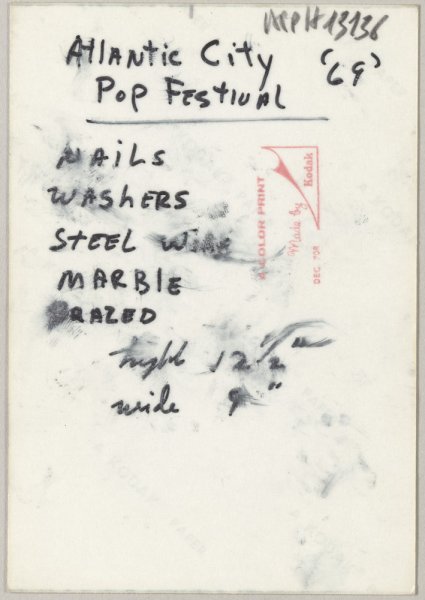 Atlantic City ('69)
Pop Festival
NAILS
WASHERS
STEEL WIRE
MARBLE
BRAZED
hight 12 1/2"
wide 9"
A COLOR PRINT
Made by Kodak
DEC. 70R